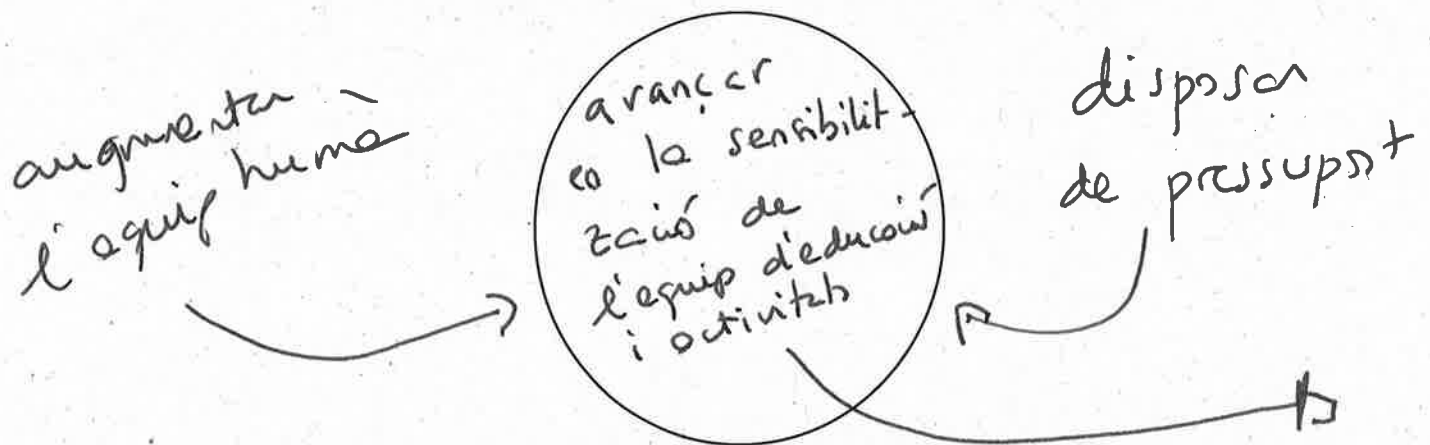 augmentar
l'equip humà
avançar
en la sensibilit-
zació de
l'equip d'educació
i activitats
disposar
de pressupost